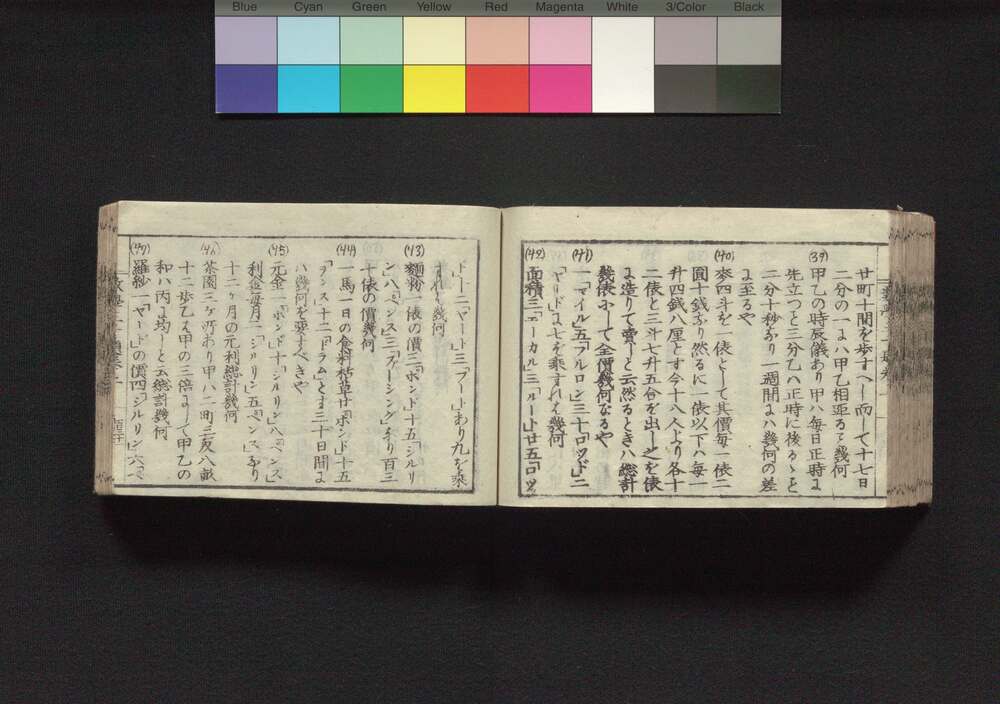 Blue Cyan Green Yellow Red Magenta White 3/Color Black
廿町十間を歩すへし而して十七日
二分の一よハ甲乙相距るゝ幾何
(39)
甲乙の時辰儀あり甲ハ毎日正時よ
先立つと三分乙ハ正時に後るゝと
二分十秒なり一週間よハ幾何の差
よ至るや
(40)
麥四斗を一俵として其價毎一俵二
圓十錢なり然るに一俵以下ハ毎一
升四錢八厘とす今十八人より各十
二俵と三斗七升五合を出し之を俵
よ造りて賣しと云然るときハ總計
幾俵にして全價幾何なるや
(41)
一「マイル」五「フルロン」三十「ロッド」二
「ヤード」よ七を乘すれハ幾何
(42)
面積三「エーカル」三「ルート」廿五「ロッ
ド」二「ヤード」三「フート」あり九を乘
すれハ幾何
(43)
麵粉一俵の價三「ポンド」十五「シルリ
ン」八「ペンス」三「ファーシング」なり百三
十俵の價幾何
(44)
一馬一日の食料枯草廿「ポンド」十五
「ヲンス」十二「ドラム」とす三十日間よ
ハ幾何を要すへきや
(45)
元金一「ポンド」十「シルリン」八「ペンス」
利金毎月一「シリリン」五「ペンス」なり
十二ヶ月の元利總計幾何
(46)
茶園三ヶ所あり甲ハ二町三反八畝
十二歩乙よ甲の三倍よして甲乙の
和ハ丙よ均しと云總計幾何
(47)
羅紗一「ヤード」の價四「シルリン」六「ペ